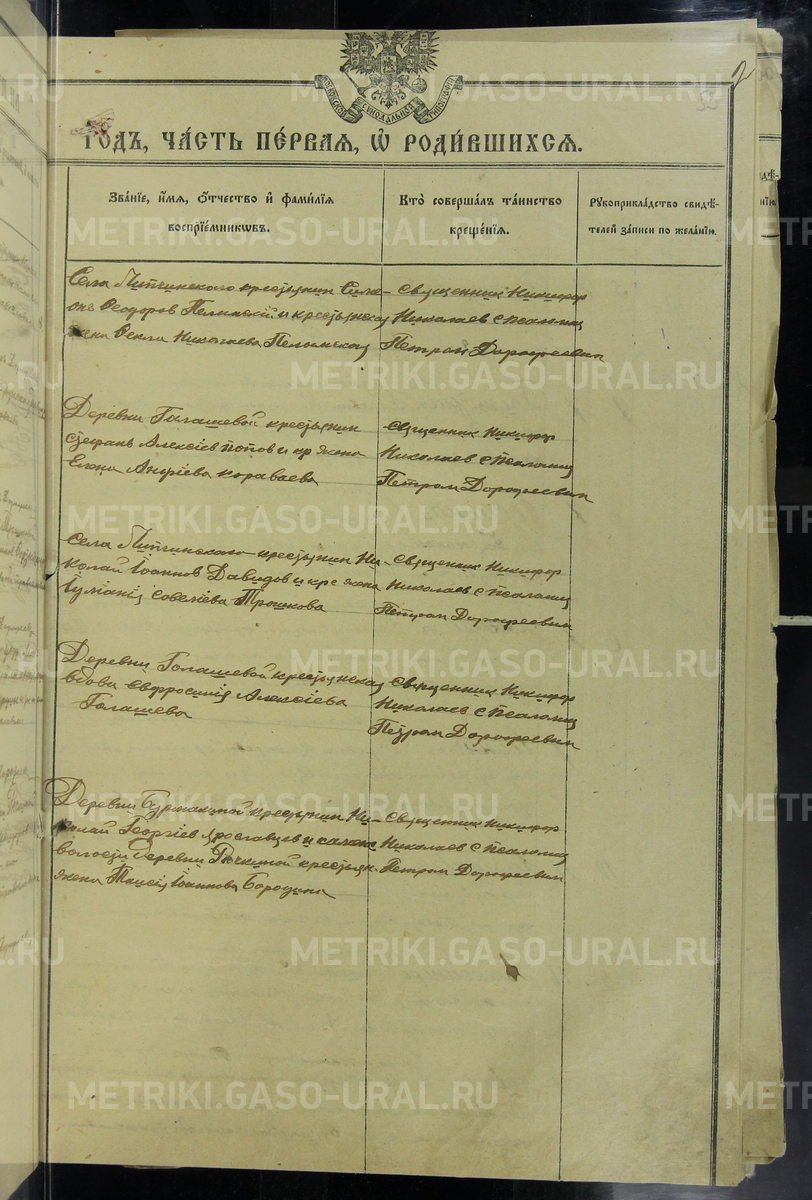 2
МОСКОВСКОЙ СѴНОДАЛЬНОЙ ТИПОГРАФІИ
ГОДЪ, ЧА́СТЬ ПЕ́РВАЯ, Ѡ҆ РОДИ́ВШИХСЯ.
Зва́нїе, и҆́мя, ѻ҆́тчество и҆ фами́лїя
воспрїе́мникѡвъ.
Кто̀ соверша́лъ та́инство
креще́нїя.
Рꙋкоприкла́дство свидѣ́-
телей за́писи по жела́нїю.
Села Липчинского крестьянин Симе-
онъ Феодоров Пелымской и крестьянская
жена Фекла Николаева Пелымская
Священник Никифор
Николаев с псаломщ
Петром Дорофеевым
Деревни Галашевой крестьянин
Стефанъ Алексіев Попов и кр жена
Елена Андріева Караваева
Священник Никифор
Николаев с псаломщ
Петром Дорофеевым
Села Липчинского крестьянин Ни-
колай Іоаннов Давидов и кре жена
Іуліанія Савеліева Трошкова
Священник Никифор
Николаев с псаломщ
Петром Дорофеевым
Деревни Галашевой крестьянская
вдова Евфросинія Алексіева
Галашева
Священник Никифор
Николаев с псаломщ
Петром Дорофеевым
Деревни Бурмакиной крестьянин Ни-
колай Георгіев Ярославцев и
волости деревни крестьян
жена Таисія Іоаннова Бородина
Священник Никифор
Николаев с псаломщ
Петром Дорофеевым
METRIKI.GASO-URAL.RU